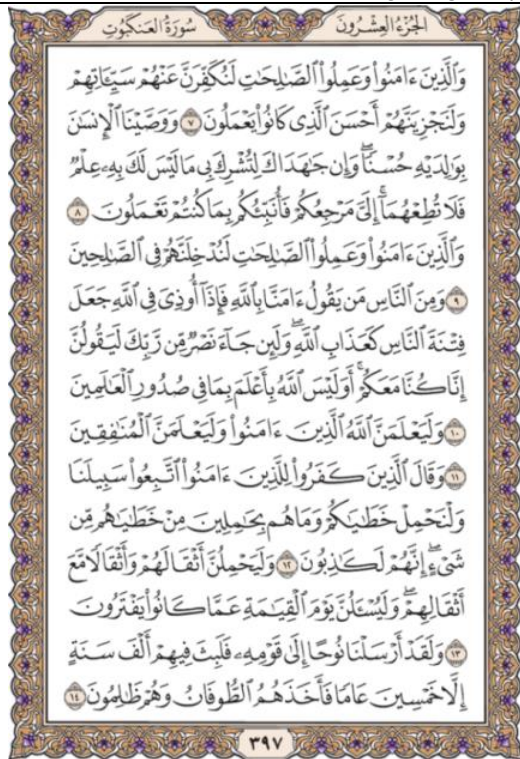 الجُزْءُ العِشْرُونَ سُورَةُ العَنكَبُوتِ
وَالَّذِينَ ءَامَنُوا۟ وَعَمِلُوا۟ ٱلصَّـٰلِحَـٰتِ لَنُكَفِّرَنَّ عَنْهُمْ سَيِّـَٔاتِهِمْ
وَلَنَجْزِيَنَّهُمْ أَحْسَنَ ٱلَّذِى كَانُوا۟ يَعْمَلُونَ ٧ وَوَصَّيْنَا ٱلْإِنسَـٰنَ
بِوَٰلِدَيْهِ حُسْنًا ۖ وَإِن جَـٰهَدَاكَ لِتُشْرِكَ بِى مَا لَيْسَ لَكَ بِهِۦ عِلْمٌ
فَلَا تُطِعْهُمَآ ۚ إِلَىَّ مَرْجِعُكُمْ فَأُنَبِّئُكُم بِمَا كُنتُمْ تَعْمَلُونَ ٨
وَٱلَّذِينَ ءَامَنُوا۟ وَعَمِلُوا۟ ٱلصَّـٰلِحَـٰتِ لَنُدْخِلَنَّهُمْ فِى ٱلصَّـٰلِحِينَ
٩ وَمِنَ ٱلنَّاسِ مَن يَقُولُ ءَامَنَّا بِٱللَّهِ فَإِذَآ أُوذِىَ فِى ٱللَّهِ جَعَلَ
فِتْنَةَ ٱلنَّاسِ كَعَذَابِ ٱللَّهِ ۖ وَلَئِن جَآءَ نَصْرٌ مِّن رَّبِّكَ لَيَقُولُنَّ
إِنَّا كُنَّا مَعَكُمْ ۚ أَوَلَيْسَ ٱللَّهُ بِأَعْلَمَ بِمَا فِى صُدُورِ ٱلْعَـٰلَمِينَ
١٠ وَلَيَعْلَمَنَّ ٱللَّهُ ٱلَّذِينَ ءَامَنُوا۟ وَلَيَعْلَمَنَّ ٱلْمُنَـٰفِقِينَ
١١ وَقَالَ ٱلَّذِينَ كَفَرُوا۟ لِلَّذِينَ ءَامَنُوا۟ ٱتَّبِعُوا۟ سَبِيلَنَا
وَلْنَحْمِلْ خَطَـٰيَـٰكُمْ وَمَا هُم بِحَـٰمِلِينَ مِنْ خَطَـٰيَـٰهُم مِّن
شَىْءٍ ۖ إِنَّهُمْ لَكَـٰذِبُونَ ١٢ وَلَيَحْمِلُنَّ أَثْقَالَهُمْ وَأَثْقَالًا مَّعَ
أَثْقَالِهِمْ ۖ وَلَيُسْـَٔلُنَّ يَوْمَ ٱلْقِيَـٰمَةِ عَمَّا كَانُوا۟ يَفْتَرُونَ
١٣ وَلَقَدْ أَرْسَلْنَا نُوحًا إِلَىٰ قَوْمِهِۦ فَلَبِثَ فِيهِمْ أَلْفَ سَنَةٍ
إِلَّا خَمْسِينَ عَامًا فَأَخَذَهُمُ ٱلطُّوفَانُ وَهُمْ ظَـٰلِمُونَ ١٤
٣٩٧